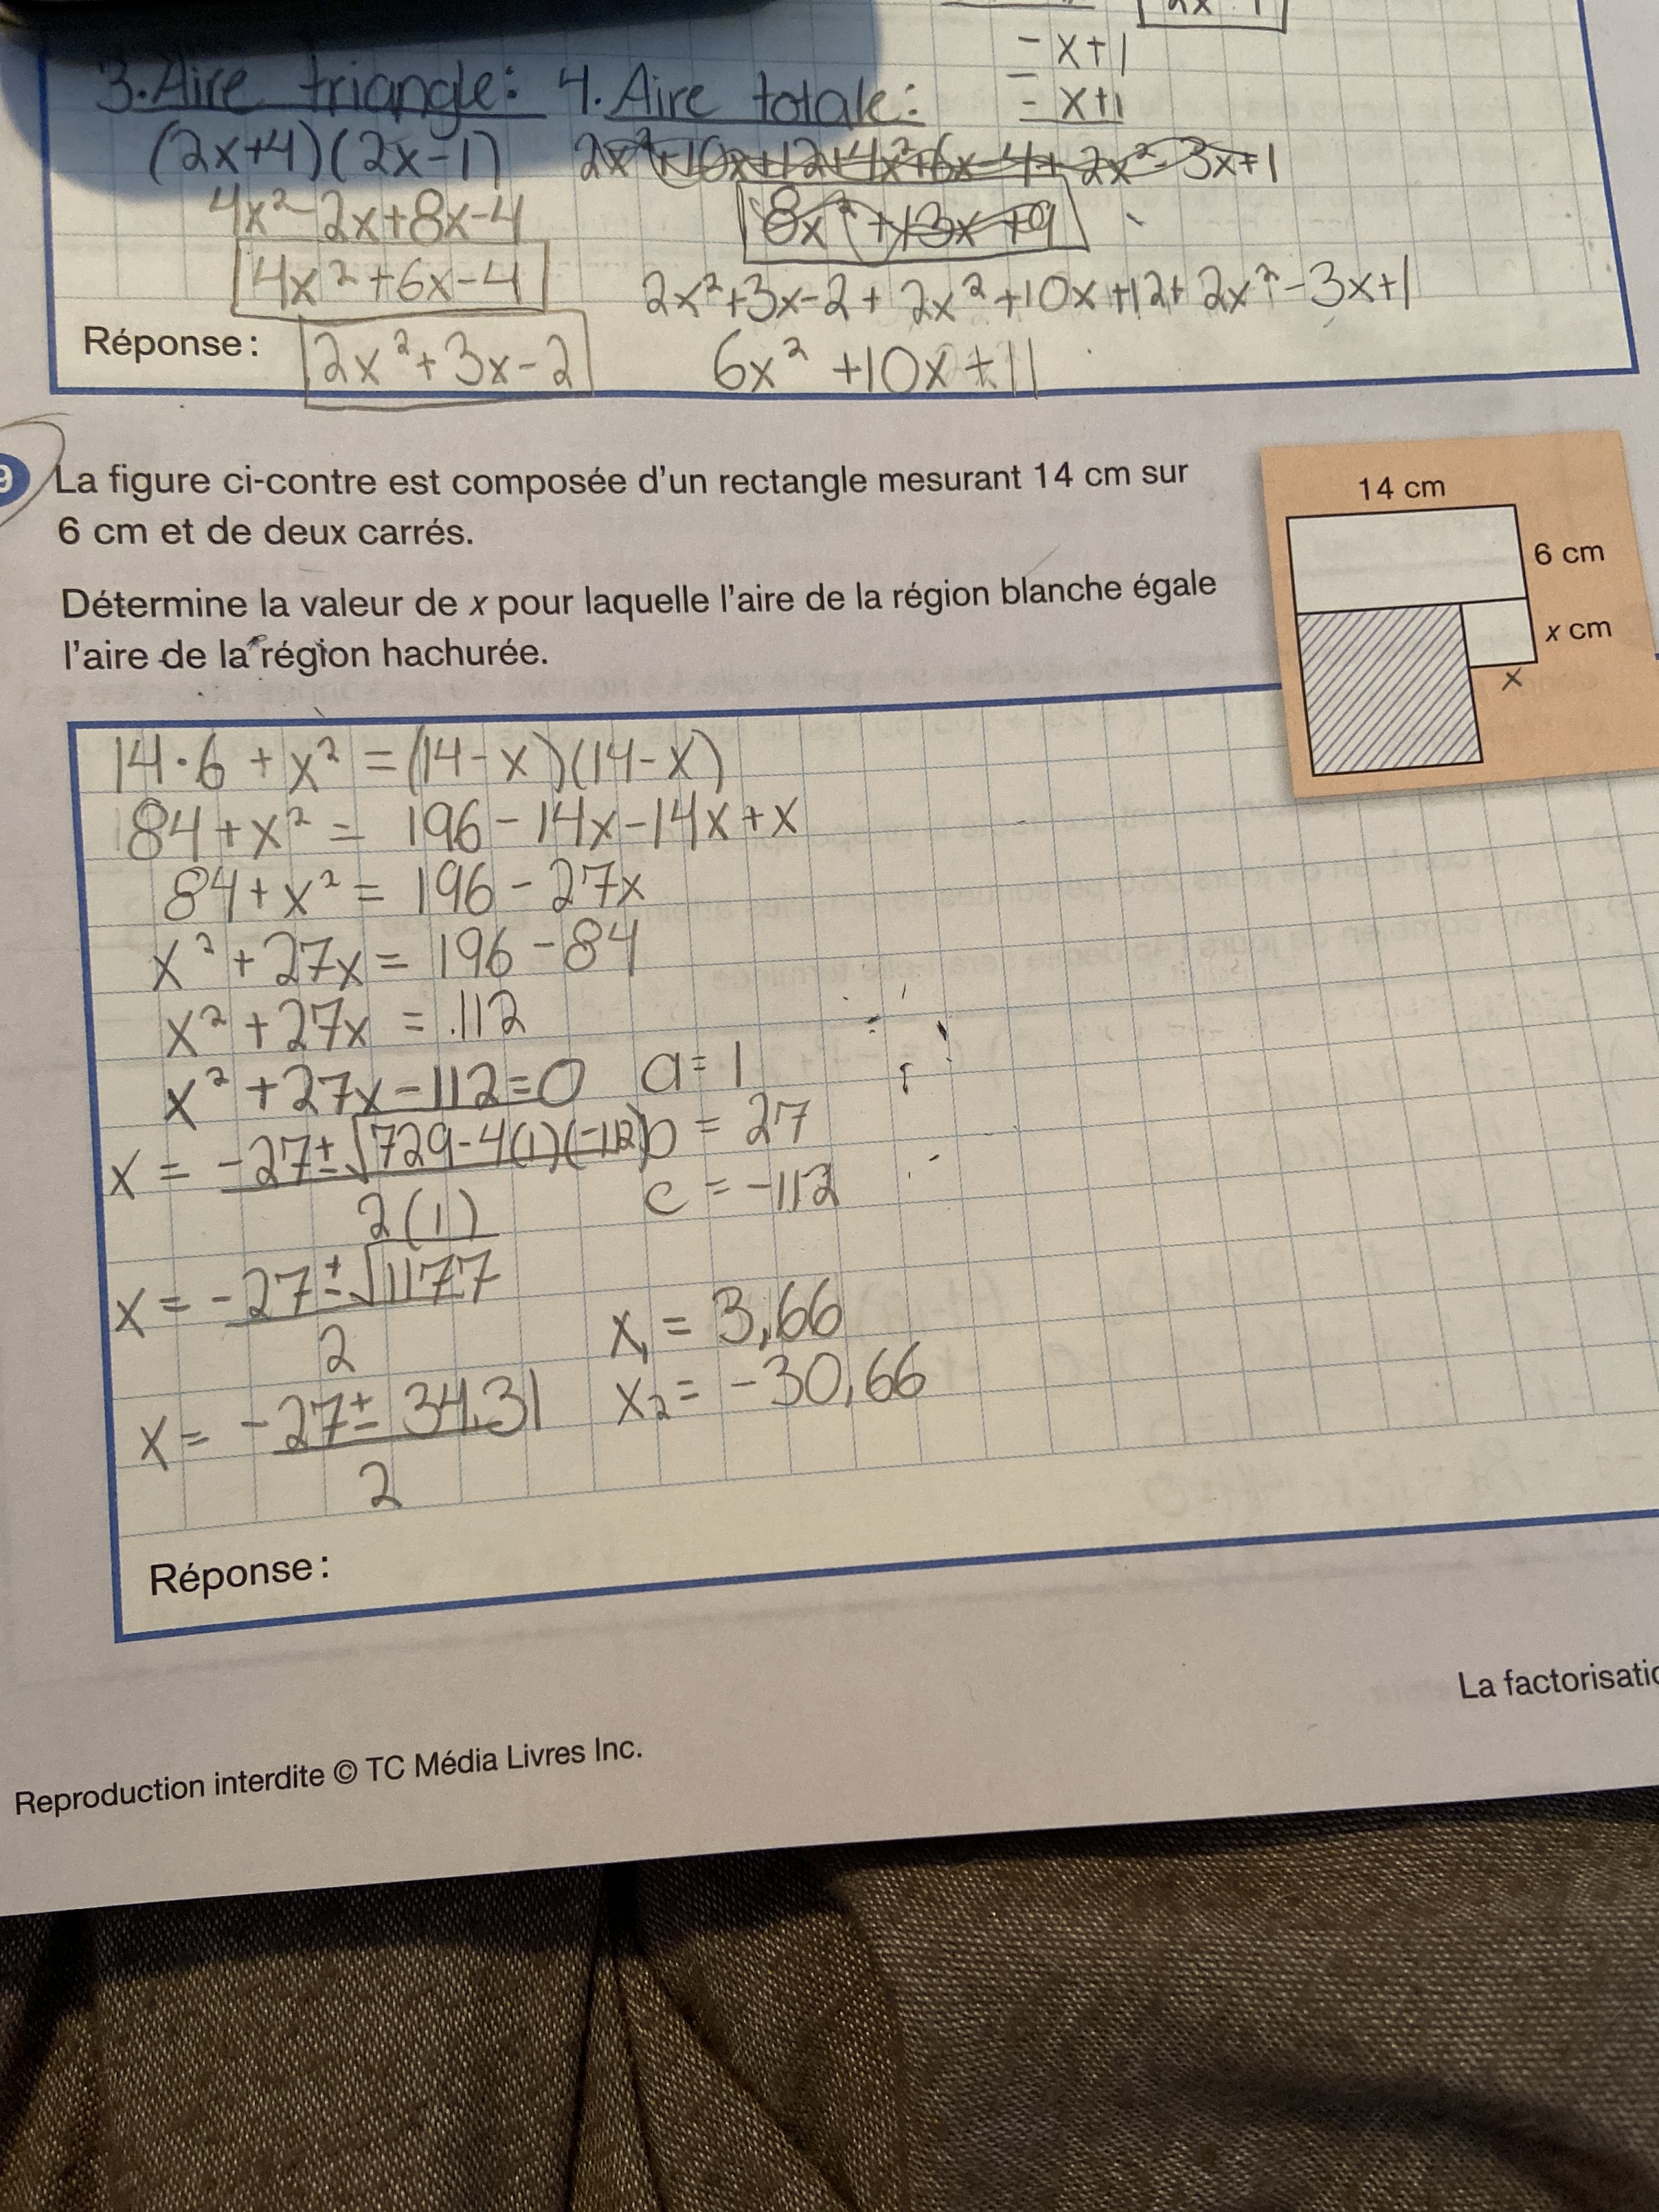 2x-1
- x+1
- x+1
3. Aire triangle:
(2x+4)(2x-1)
4x²-2x+8x-4
4x²+6x-4
4. Aire totale:
2x²+10x+12+4x²+6x-4+2x²-3x+1
8x²+13x+9
2x²+3x-2+2x²+10x+12+2x²-3x+1
Réponse: 2x²+3x-2
6x²+10x+11
9 La figure ci-contre est composée d'un rectangle mesurant 14 cm sur
6 cm et de deux carrés.
Détermine la valeur de x pour laquelle l'aire de la région blanche égale
l'aire de la région hachurée.
14 cm
6 cm
x cm
x
14·6+x²=(14-x)(14-x)
84+x²=196-14x-14x+x
84+x²=196-27x
x²+27x=196-84
x²+27x=112
x²+27x-112=0
a=1
b=27
c=-112
x=-27±√729-4(1)(-112)
2(1)
x=-27±√1177
2
x=-27±34.31
2
x₁=3,66
x₂=-30,66
Réponse:
La factorisatio
Reproduction interdite © TC Média Livres Inc.